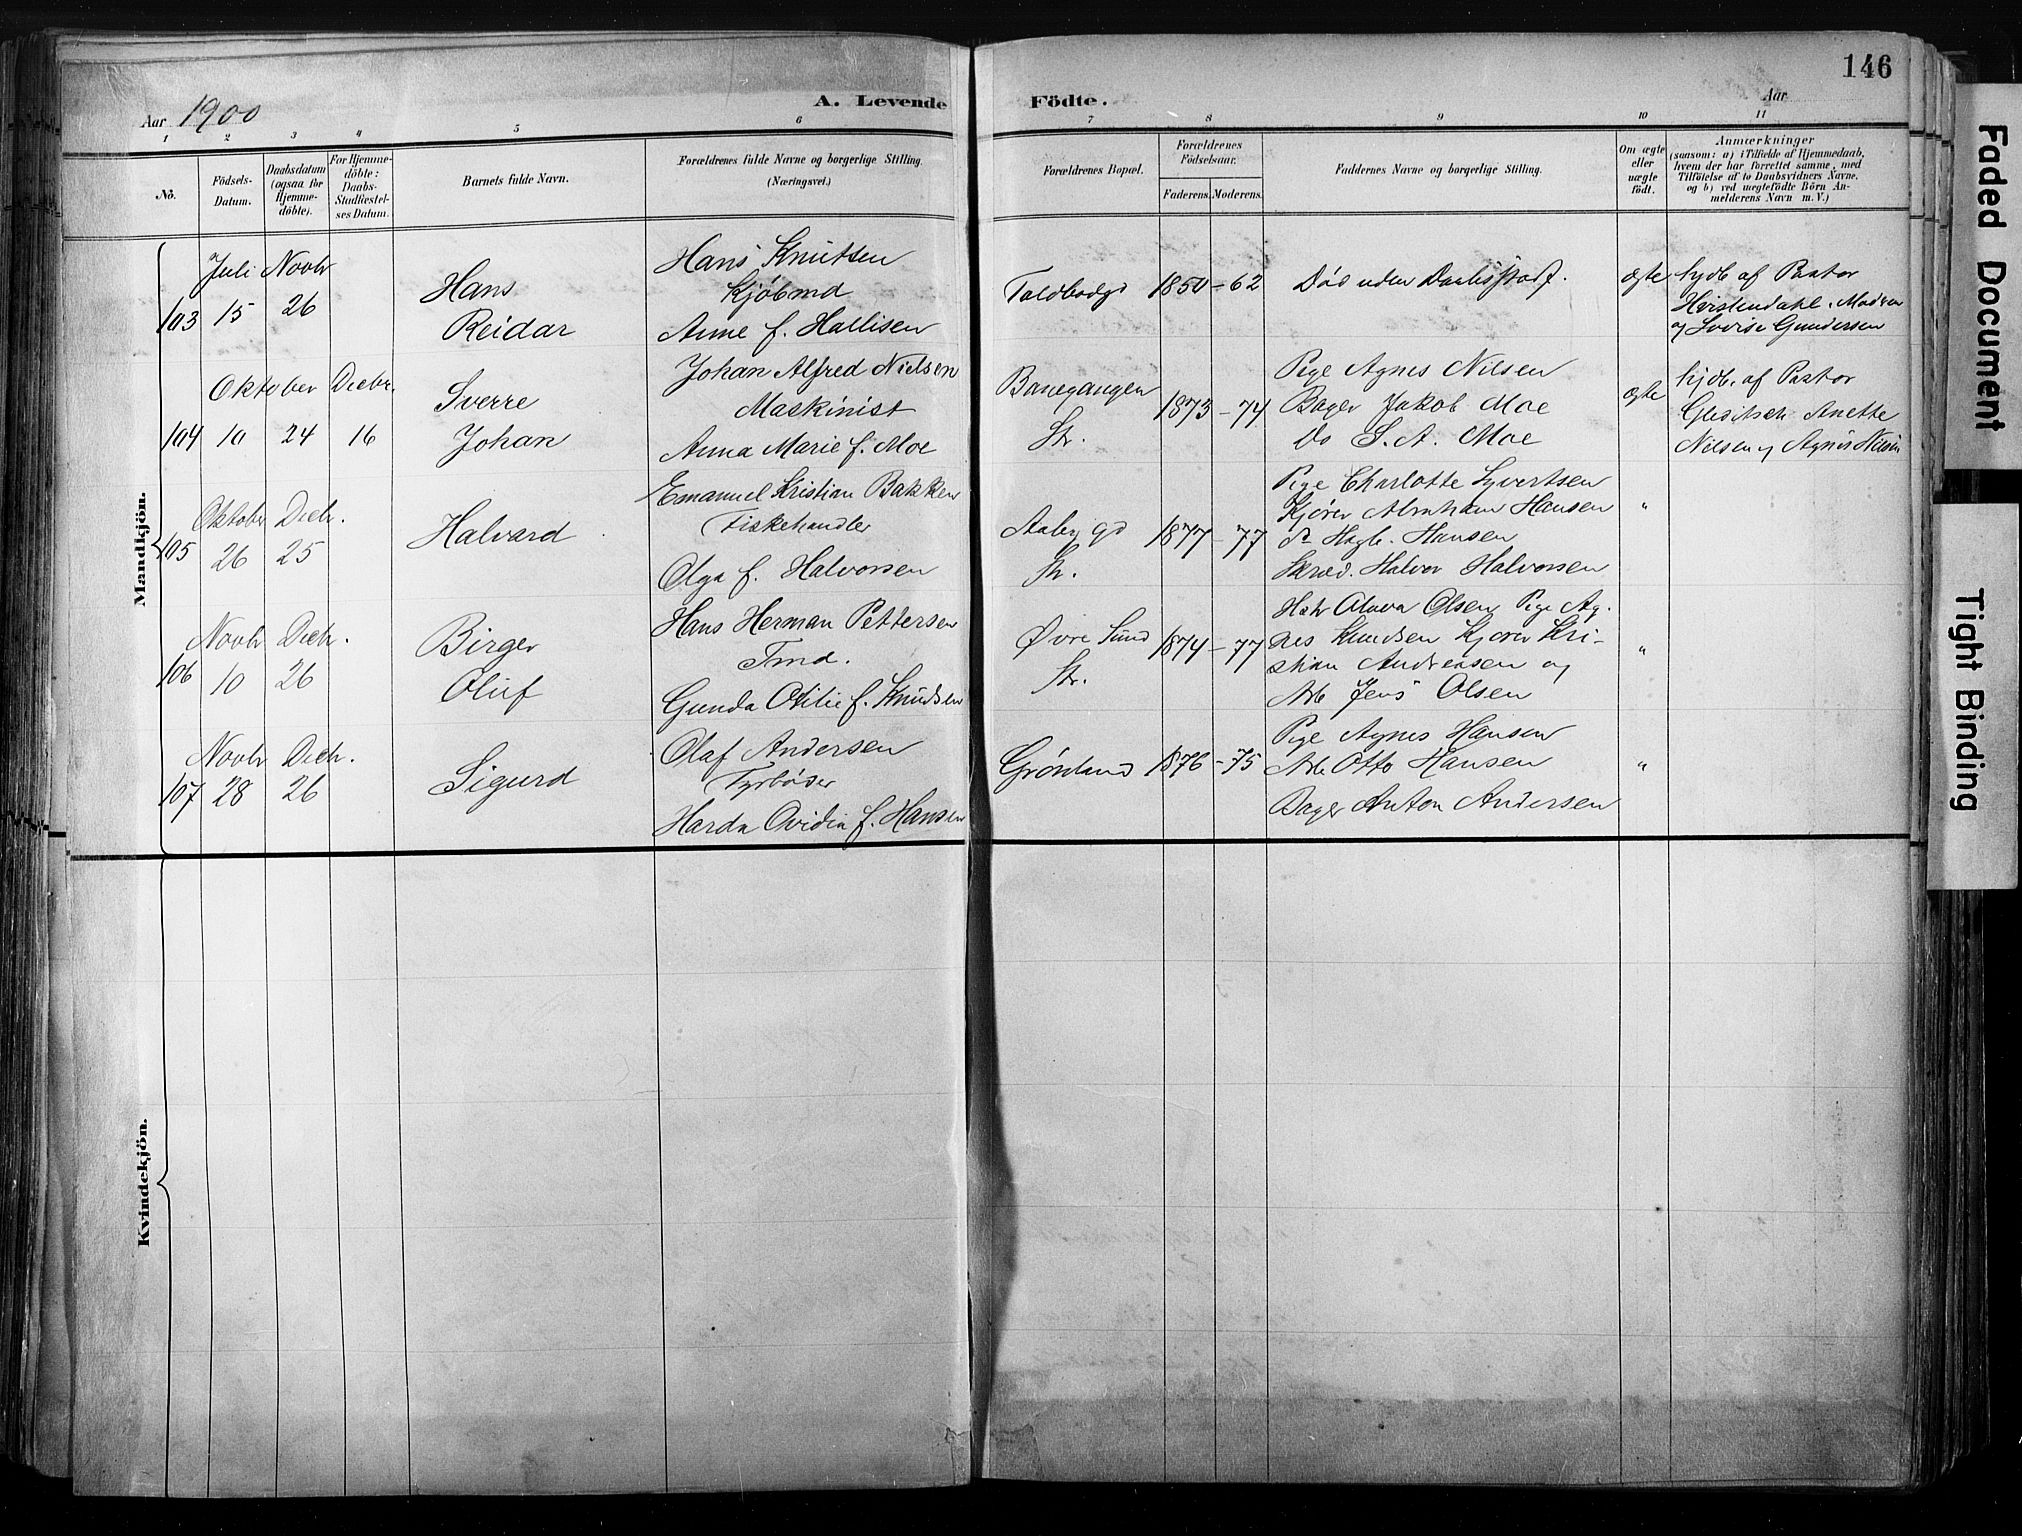 146
Aar 1900
A. Levende Födte.
Aar
1 2 3 4 5 6 7 8 9 10 11
No.
Födsels-
Datum.
Daabsdatum
(ogsaa for
Hjemme-
döbte).
For Hjemme-
döbte:
Daabs-
Stadfæstel-
ses Datum.
Barnets fulde Navn.
Forældrenes fulde Navne og borgerlige Stilling.
(Næringsvei.)
Forældrenes Bopæl.
Forældrenes
Födselsaar.
Faderens. Moderens.
Faddernes Navne og borgerlige Stilling.
Om ægte
eller
uægte
födt.
Anmærkninger
(saasom: a) i Tilfælde af Hjemmedaab,
hvem der har forrettet samme, med
Tilföielse af to Daabsvidners Navne,
og b) ved uægtefödte Börn An-
melderens Navn m. V.)
Mandkjön.
Juli Novbr
103 15 26
Hans
Reidar
Hans Knutsen
Kjøbmd
Anne f. Hallisen
Toldbodgd
1850 - 62
Død uden Daabsstadf.
ægte
hjdb af Pastor
Hvistendahl. Madsen
og Lovise Gundersen
Oktober Decbr.
104 10 24 16
Sverre
Johan
Johan Alfred Nielsen
Maskinist
Anna Marie f. Moe
Banegangen
Str.
1873 - 74
Pige Agnes Nilsen
Bager Jakob Moe
Do S. A. Moe
ægte
hjdb. af Pastor
Gleditsch Anette
Nilsen og Agnes Nilsen
Oktober Decbr.
105 26 25
Halvard
Emanuel Kristian Bakken
Fiskehandler
Olga f. Halvorsen
Aaby gd
Str.
1877 - 77
Pige Charlotte Syvertsen
Kjører Abraham Hansen
do Hagb. Hansen
Skræd. Halvor Halvorsen
"
Novbr Decbr.
106 10 26
Birger
Oluf
Hans Herman Pettersen
Tmd.
Gunda Otilie f. Knudsen
Øvre Sund
Str.
1874 - 77
Olsen Pige Ag-
nes Knudsen Kjører Kri-
stian Andreasen og
Arb Jens Olsen
"
Novbr Decbr.
107 28 26
Sigurd
Olaf Andersen
Fyrbøder
Harda Ovidia f. Hansen
Grønland
1876 - 75
Pige Agnes Hansen
Arb Otto Hansen
Bager Anton Andersen
"
Kvindekjön.
Faded Document
Tight Binding